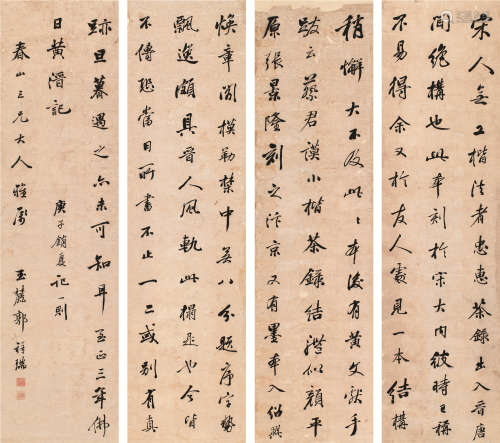 宋人無工楷法者忠惠茶錄出入晉唐
間絕構也此本刻於宋大內彼時
不易得余又於友人處見一本結構
稍懈大不及此此本後有黃文獻手
跋云蔡君謨小楷茶錄結法似顏平
原張景隆刻之汴京又有墨本入紹興
煥章閣模勒禁中無八分題序字勢
飄逸頗具晉人風軌此搨是也今皆
不傳恐當日所書不止一二或別有真
跡旦暮遇之亦未可知耳至正三年佛
日黃溍記
庚子銷夏記一則
春山三兄大人雅屬 玉麓郭祥瑞